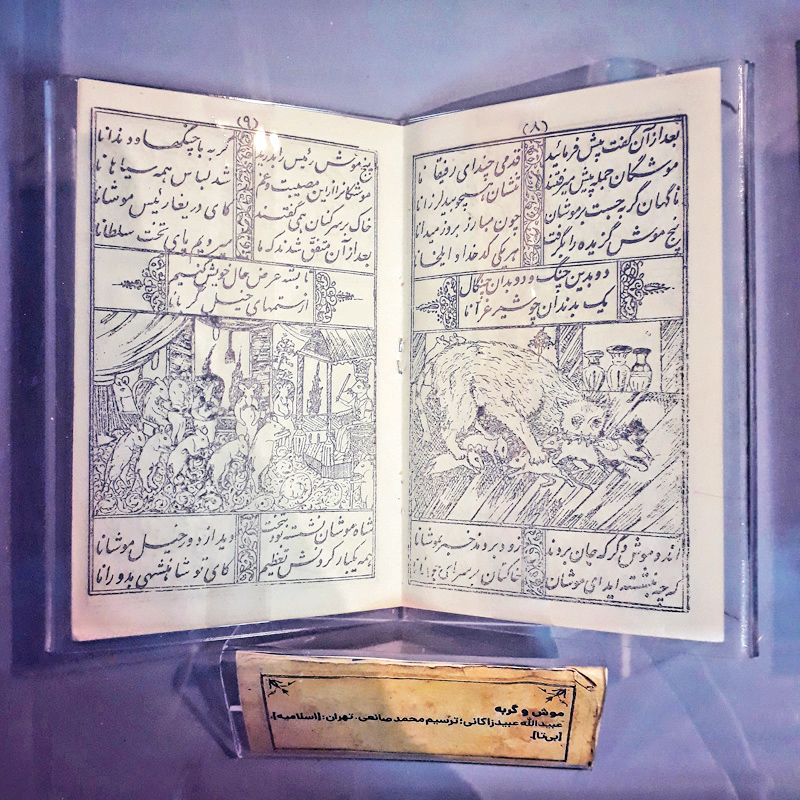 (۸)
بعد از آن گفت پیش فرمائید قدمی چند ای رفیقانا
موشکان جمله پیش میرفتند تنشان همچو بید لرزانا
ناگهان گربه جست بر موشان چون مبارز بروز میدانا
پنج موش گزیده را بگرفت هر یکی کدخدا و ایلخانا
دو بدین چنگ و دو بدان چنگال
یک بدندان چو شیر غرانا
آندو موش دگر که جان بردند زود بردند خبر بموشانا
که چه بنشسته اید ای موشان خاکتان بر سر ای جوانانا
(۹)
پنج موش رئیس را بدرید گربه با چنگها و دندانا
موشکانرا ازین مصیبت و غم شد لباس همه سیاهانا
خاک بر سر کنان همی گفتند کای دریغا رئیس موشانا
بعد از آن متفق شدند که ما میرویم پای تخت سلطانا
تا بشه عرض حال خویش کنیم
از ستمهای خیل گربانا
شاه موشان نشسته بود بتخت دید از دور خیل موشانا
همه یکبار کردنش تعظیم کای تو شاهنشهی بدورانا
موش و گربه
عبیدالله عبید زاکانی؛ ترسیم محمد صانعی. تهران: [اسلامیه]،
[بی‌تا].